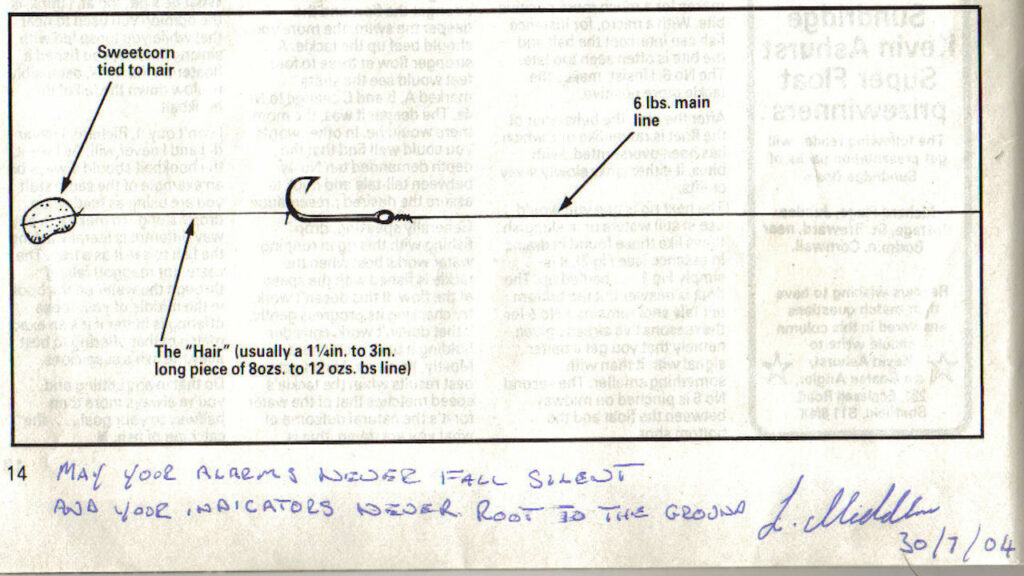 Sweetcorn
tied to hair
6 lbs. main
line
The "Hair" (usually a 1¼in. to 3in.
long piece of 8ozs. to 12 ozs. bs line)
14
MAY YOUR ALARMS NEVER FALL SILENT
AND YOUR INDICATORS NEVER ROOT TO THE GROUND
L.
30/7/04